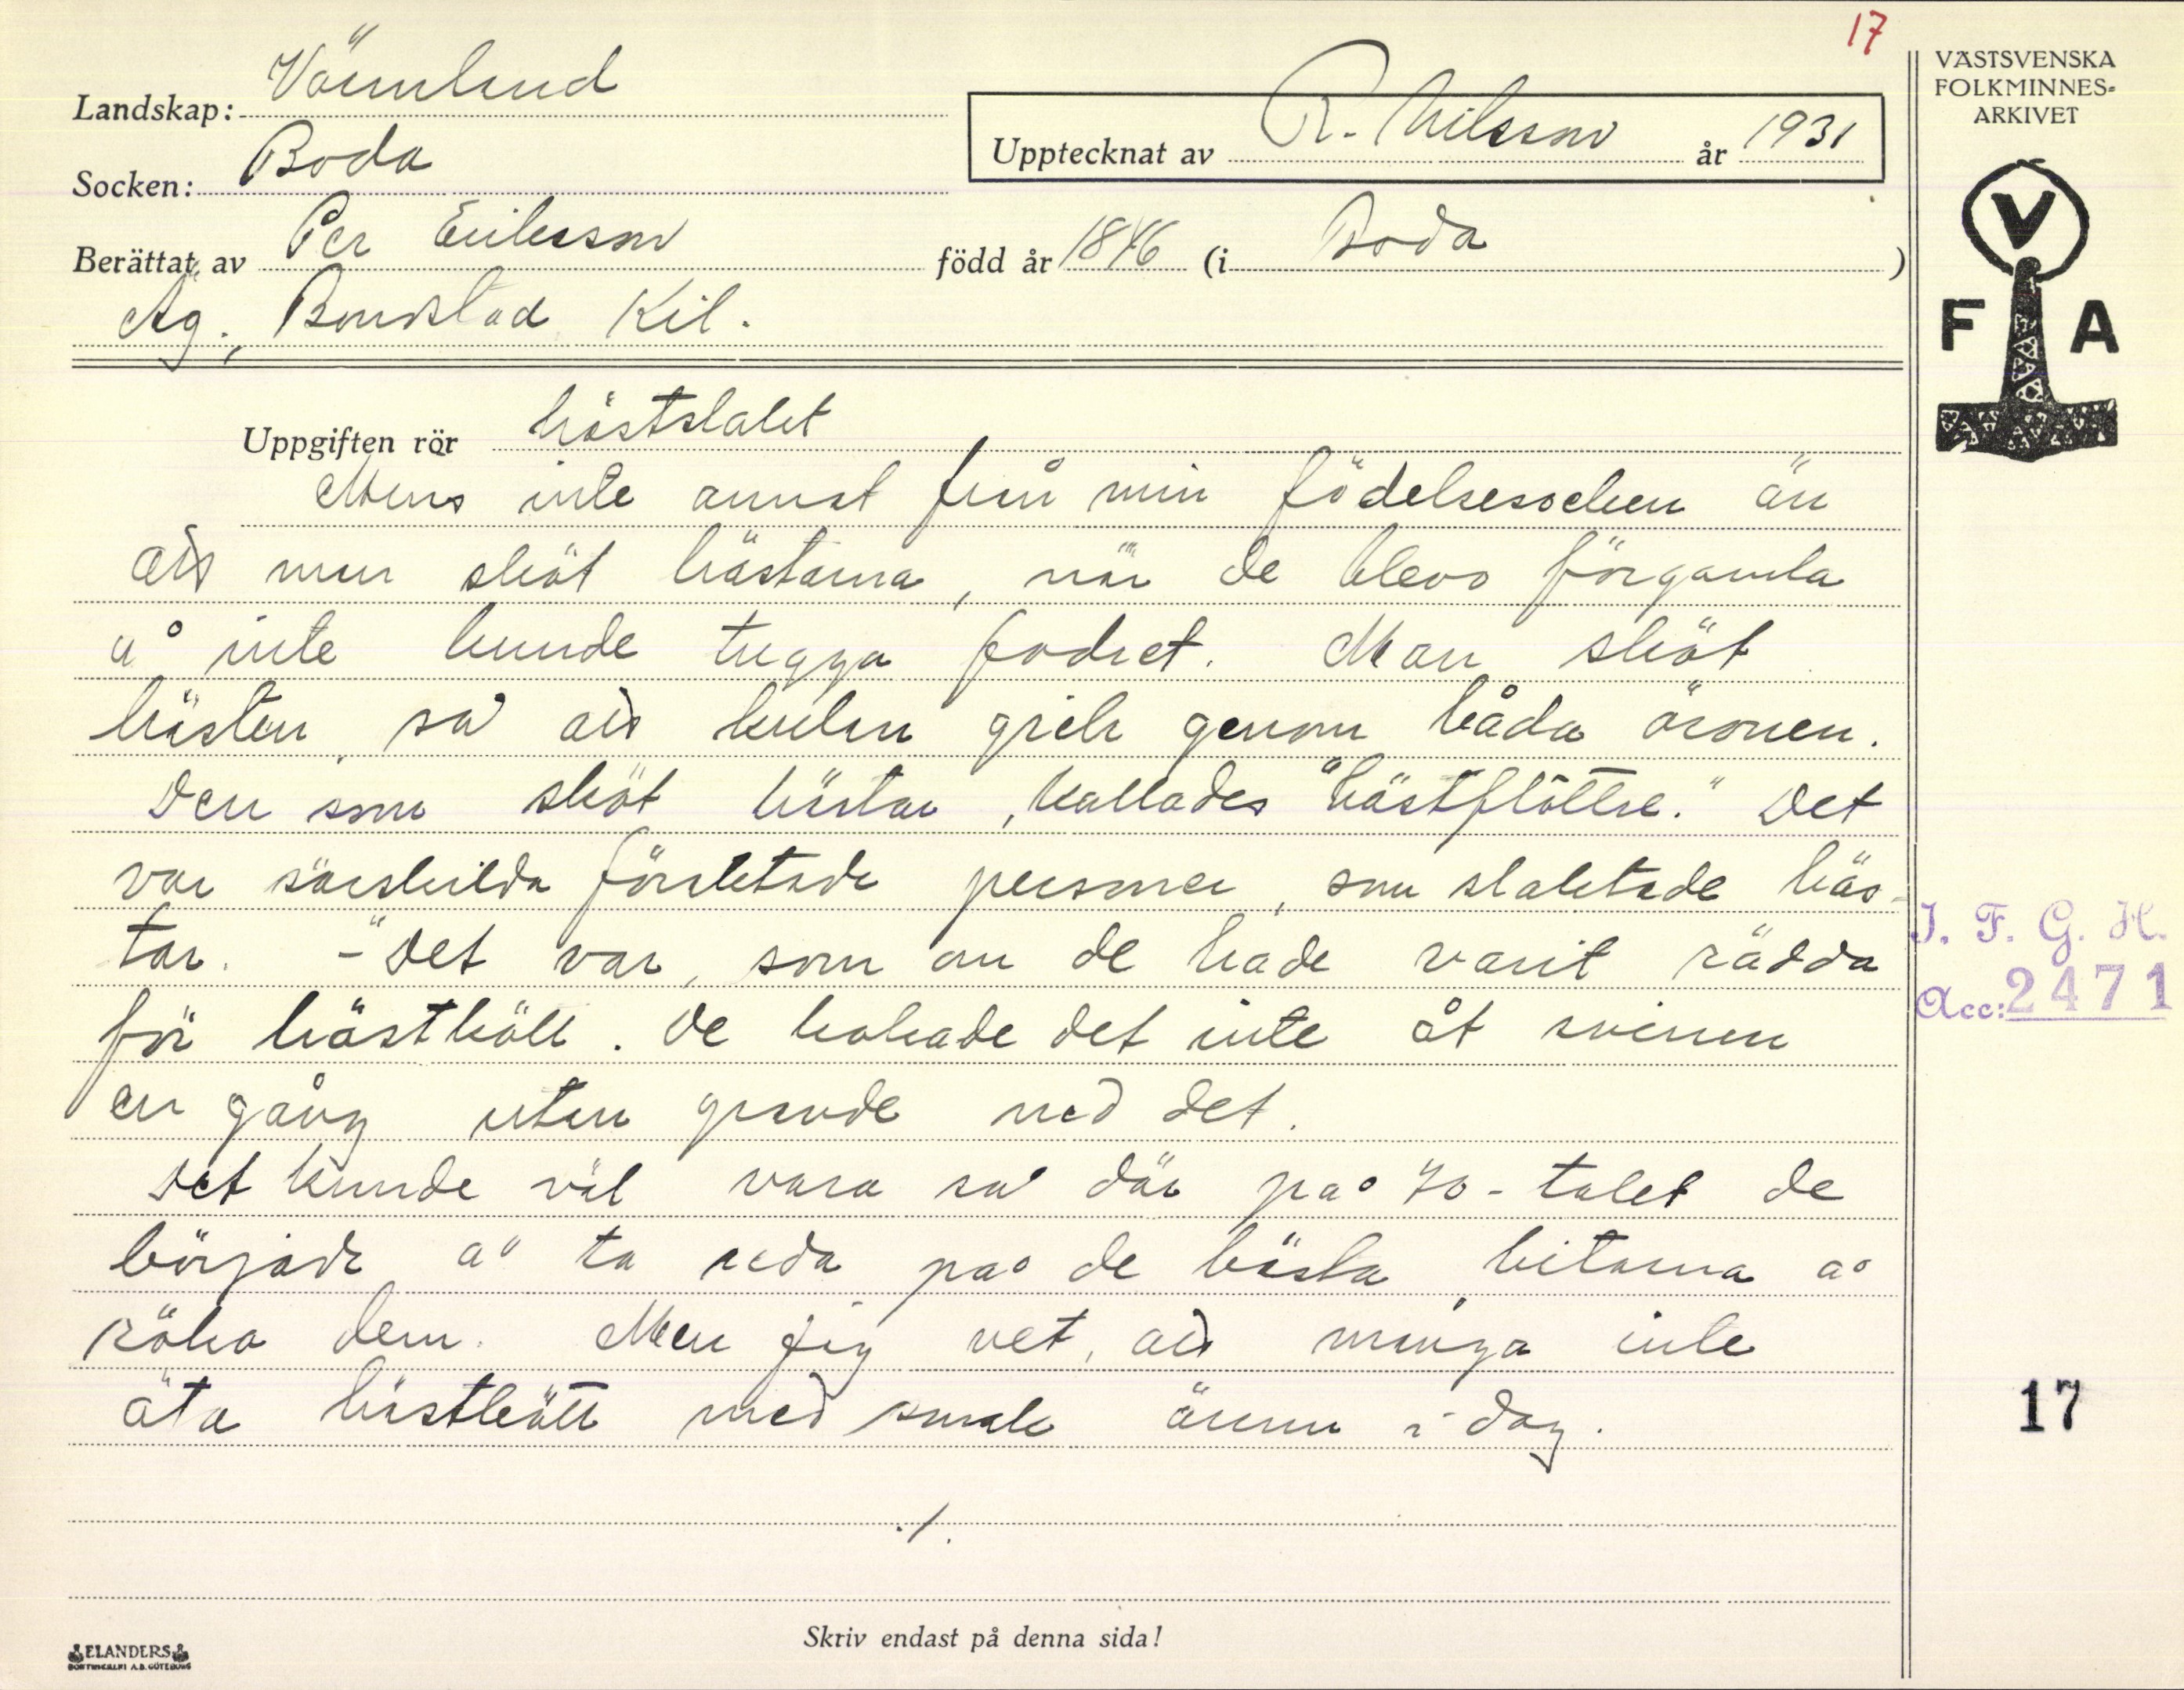 17
Landskap: Värmland
Socken: Boda
Upptecknat av R. Nilsson år 1931
Berättat av Per Eriksson född år 1846 (i Boda)
Äg., Bondstad Kil.
VÄSTSVENSKA
FOLKMINNES-
ARKIVET
V
F A
Uppgiften rör hästslakt
Minns inte annat från min födelsesocken än
att man sköt hästarna, när de blevo förgamla
å inte kunde tugga fodret. Man sköt
hästen så att kulan gick genom båda öronen.
Den som sköt hästar, kallades "hästflåttre." Det
var särskilda föraktade personer, som slaktade häs-
tar. - "Det var, som om de hade varit rädda
för hästkött. De kokade det inte åt svinen
en gång utan grävde ned det.
Det kunde väl vara så där på 70-talet de
började å ta reda på de bästa bitarna å
röka dem. Men jag vet, att många inte
äta hästkött med smak ännu i dag.
./.
I. F. G. H.
Acc: 2471
17
Skriv endast på denna sida!
ELANDERS
BOKTRYCKERI A.B. GÖTEBORG